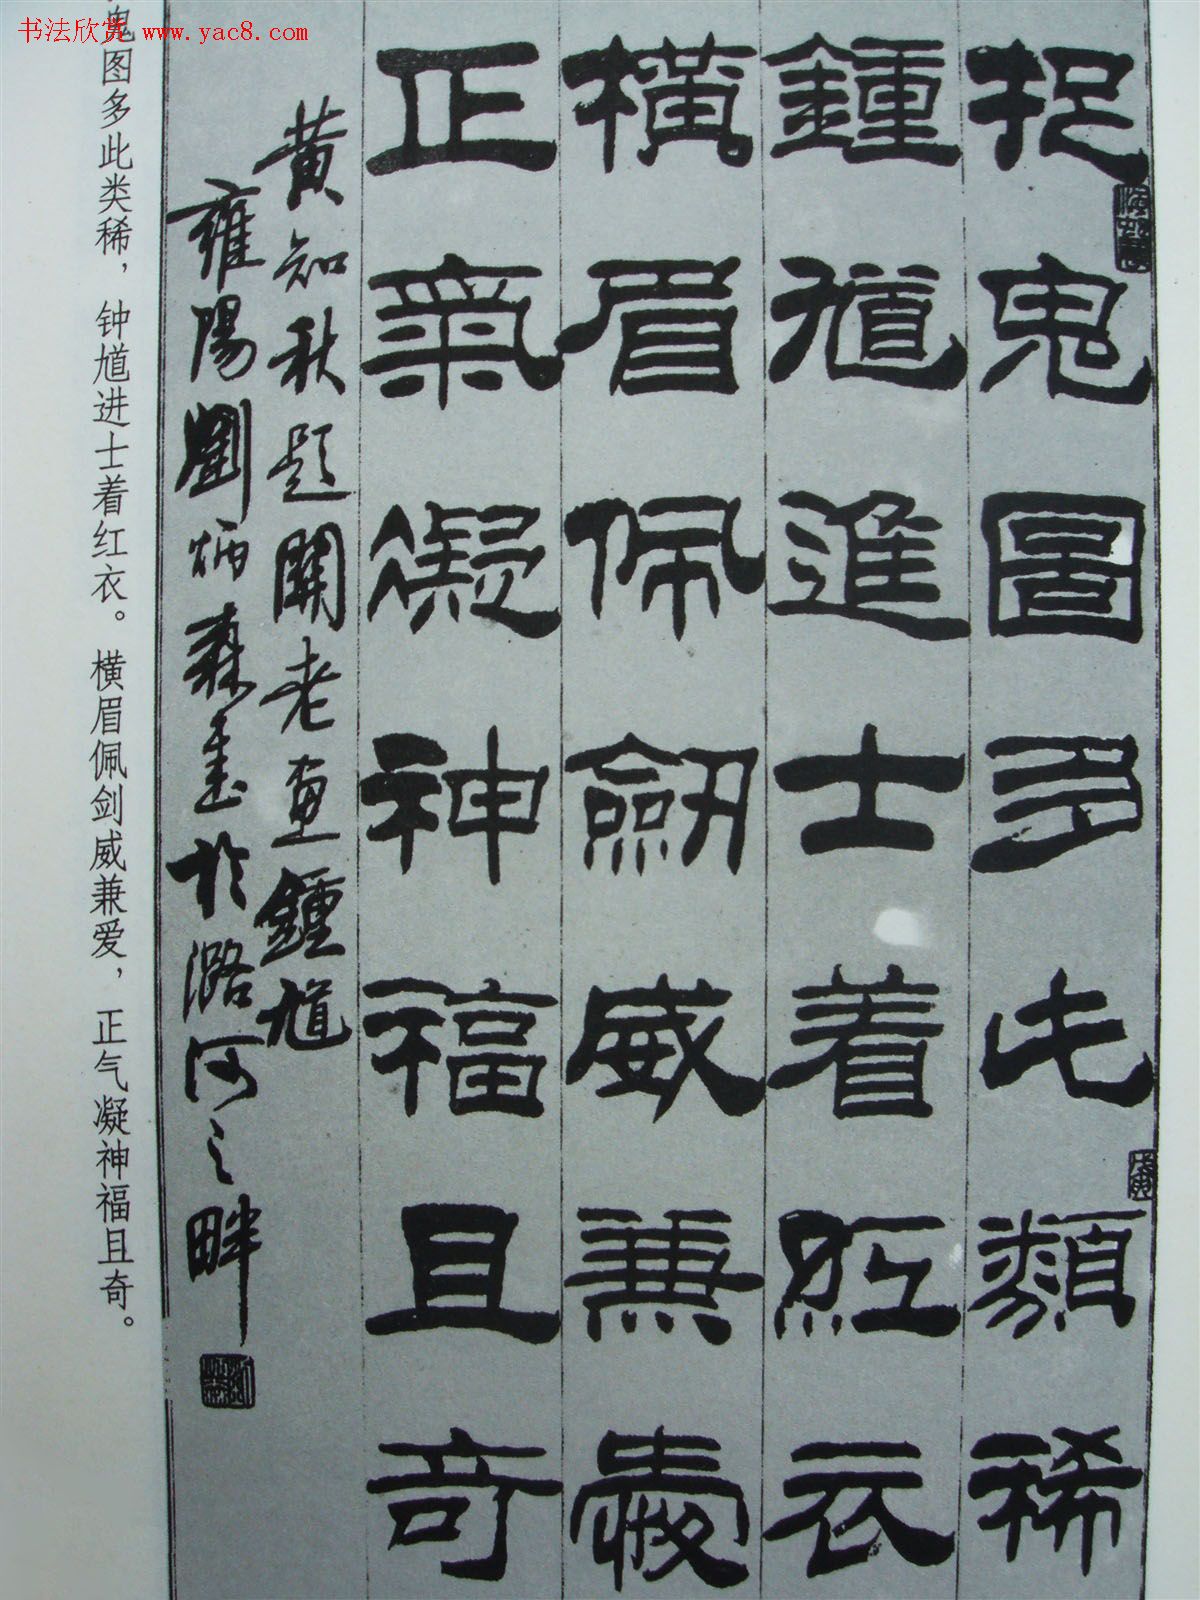 书法欣赏 www.yac8.com
把鬼圖多此類稀
鍾馗進士着紅衣
橫眉佩劍威兼愛
正氣凝神福且奇
黄知秋題關老畫鍾馗
雍陽劉炳森書於潞河之畔
鬼图多此类稀，钟馗进士着红衣。横眉佩剑威兼爱，正气凝神福且奇。